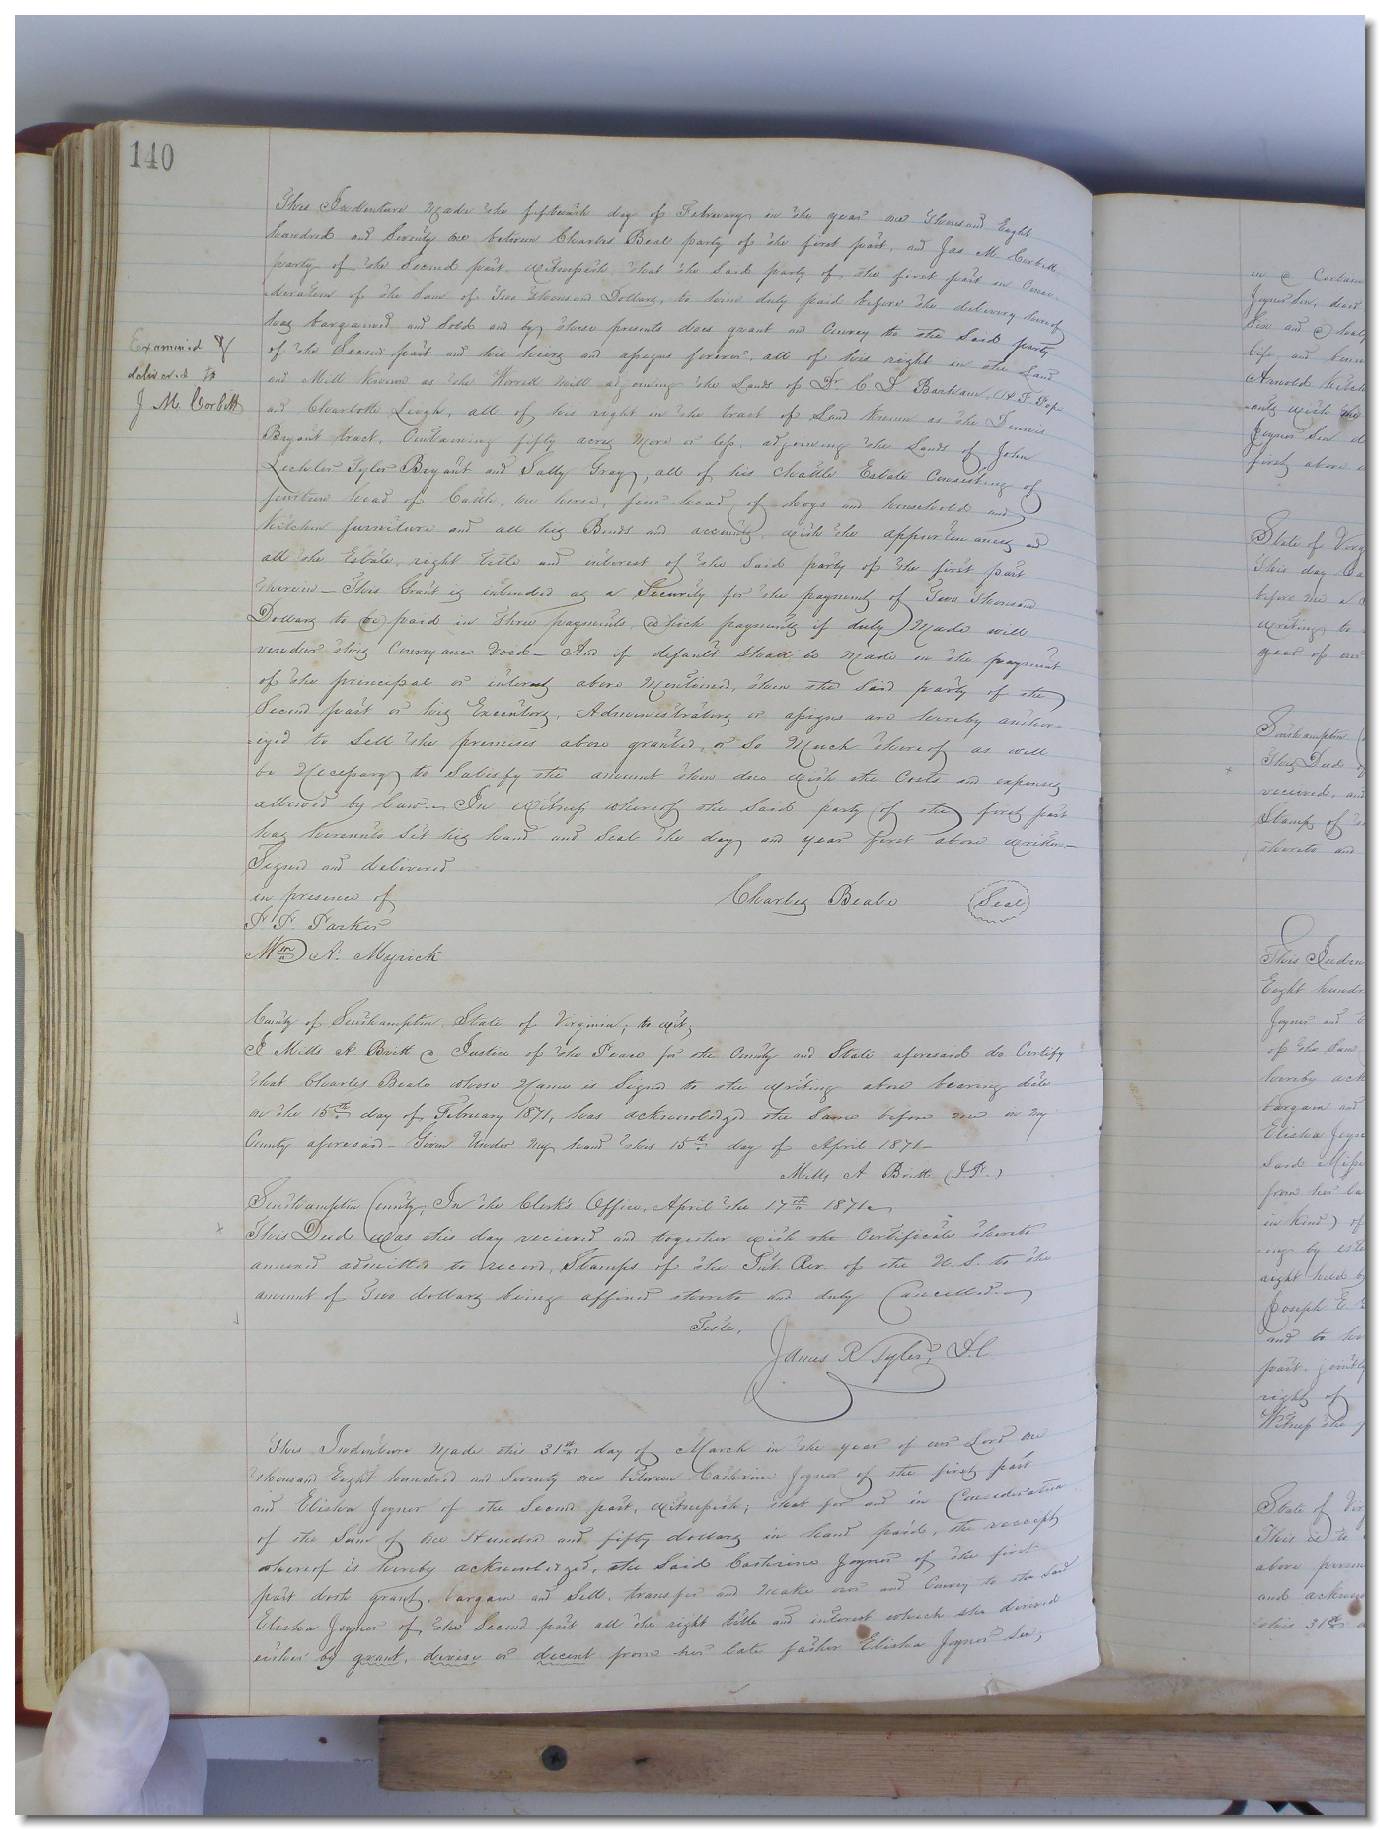 140
This Indenture Made the fifteenth day of February in the year one thousand Eight
hundred and Seventy one between Charles Beal party of the first part, and Jas. M. Corbitt
party of the Second part. Witnesseth, that the Said party of the first part in Consi-
deration of the Sum of Two thousand Dollars, to him duly paid before the delivery hereof
has bargained and Sold and by these presents does grant and Convey to the Said party
of the Second part and his heirs and assigns forever, all of his right in the Land
and Mill Known as the Worrell Mill adjoining the Lands of Dr. C. D. Barham,
and Charlotte Leigh, all of his right in the tract of Land Known as the Dennis
Bryant tract, Containing fifty acres more or less, adjoining the Lands of John
Lechler Tyler Bryant and Sally Gray, all of his Chattle Estate Consisting of
fourteen head of Cattle, one horse, head of hogs and household and
Kitchen furniture and all his Bonds and accounts, with the appurtenances and
all the Estate, right title and interest of the Said party of the first part
therein — This Grant is intended as a Security for the payments of Two thousand
Dollars to be paid in three payments, which payments if duly Made will
render this Conveyance Void — And if default Shall be Made in the payment
of the principal or interest above Mentioned, then the Said party of the
Second part or his Executors, Administrators or assigns are hereby author-
-ized to Sell the premises above granted, or So Much thereof as will
be Necessary to Satisfy the amount then due with the Costs and expenses
allowed by Law — In Witness whereof the Said party of the first part
has hereunto Set his hand and Seal the day and year first above written —
Signed and delivered
in presence of
Charles Beale Seal
F. F. Parker
Wm A. Myrick
Examined &
delivered to
J M. Corbitt
County of Southampton, State of Virginia, to wit;
I Mills A Britt a Justice of the Peace for the County and State aforesaid do Certify
that Charles Beale whose Name is Signed to the writing above bearing date
on the 15th day of February 1871, has acknowledged the Same before me in my
County aforesaid — Given Under My hand this 15th day of April 1871 —
Mills A Britt (J.P.)
Southampton County, In the Clerk's Office, April the 17th 1871
This Deed Was this day received and together with the Certificate thereto
annexed admitted to record, Stamps of the Int. Rev. of the U. S. to the
amount of Two dollars being affixed thereto and duly Cancelled —
Teste,
James R Tyler, D.C
This Indenture Made this 31st day of March in the year of our Lord one
thousand Eight hundred and Seventy one between Catherine Joyner of the first part
and Elisha Joyner of the Second part, Witnesseth; that for and in Consideration
of the Sum of one Hundred and fifty dollars in hand paid, the receipt
whereof is hereby acknowledged, the Said Catherine Joyner of the first
part doth grant, bargain and Sell, transfer and Make over and Convey to the Said
Elisha Joyner of the Second part all the right title and interest which she derived
either by grant, devise or decent from her late father Elisha Joyner Sen,
in a Certain
Joyner Sen, dec
Arnold
with the
Joyner Sen
first above
State of Virg
This day
before me a
writing to
year of our
Southampton
This Deed
received, and
Stamp of
thereto and
This Inden
Eight hund
Joyner and
of the Sum
hereby ack
bargain and
Elisha Joyn
Said
from her la
in kind) of
right held by
Joseph E.
and to
part. jointly
right of
State of Vir
This is to
above
and acknow
this 31st